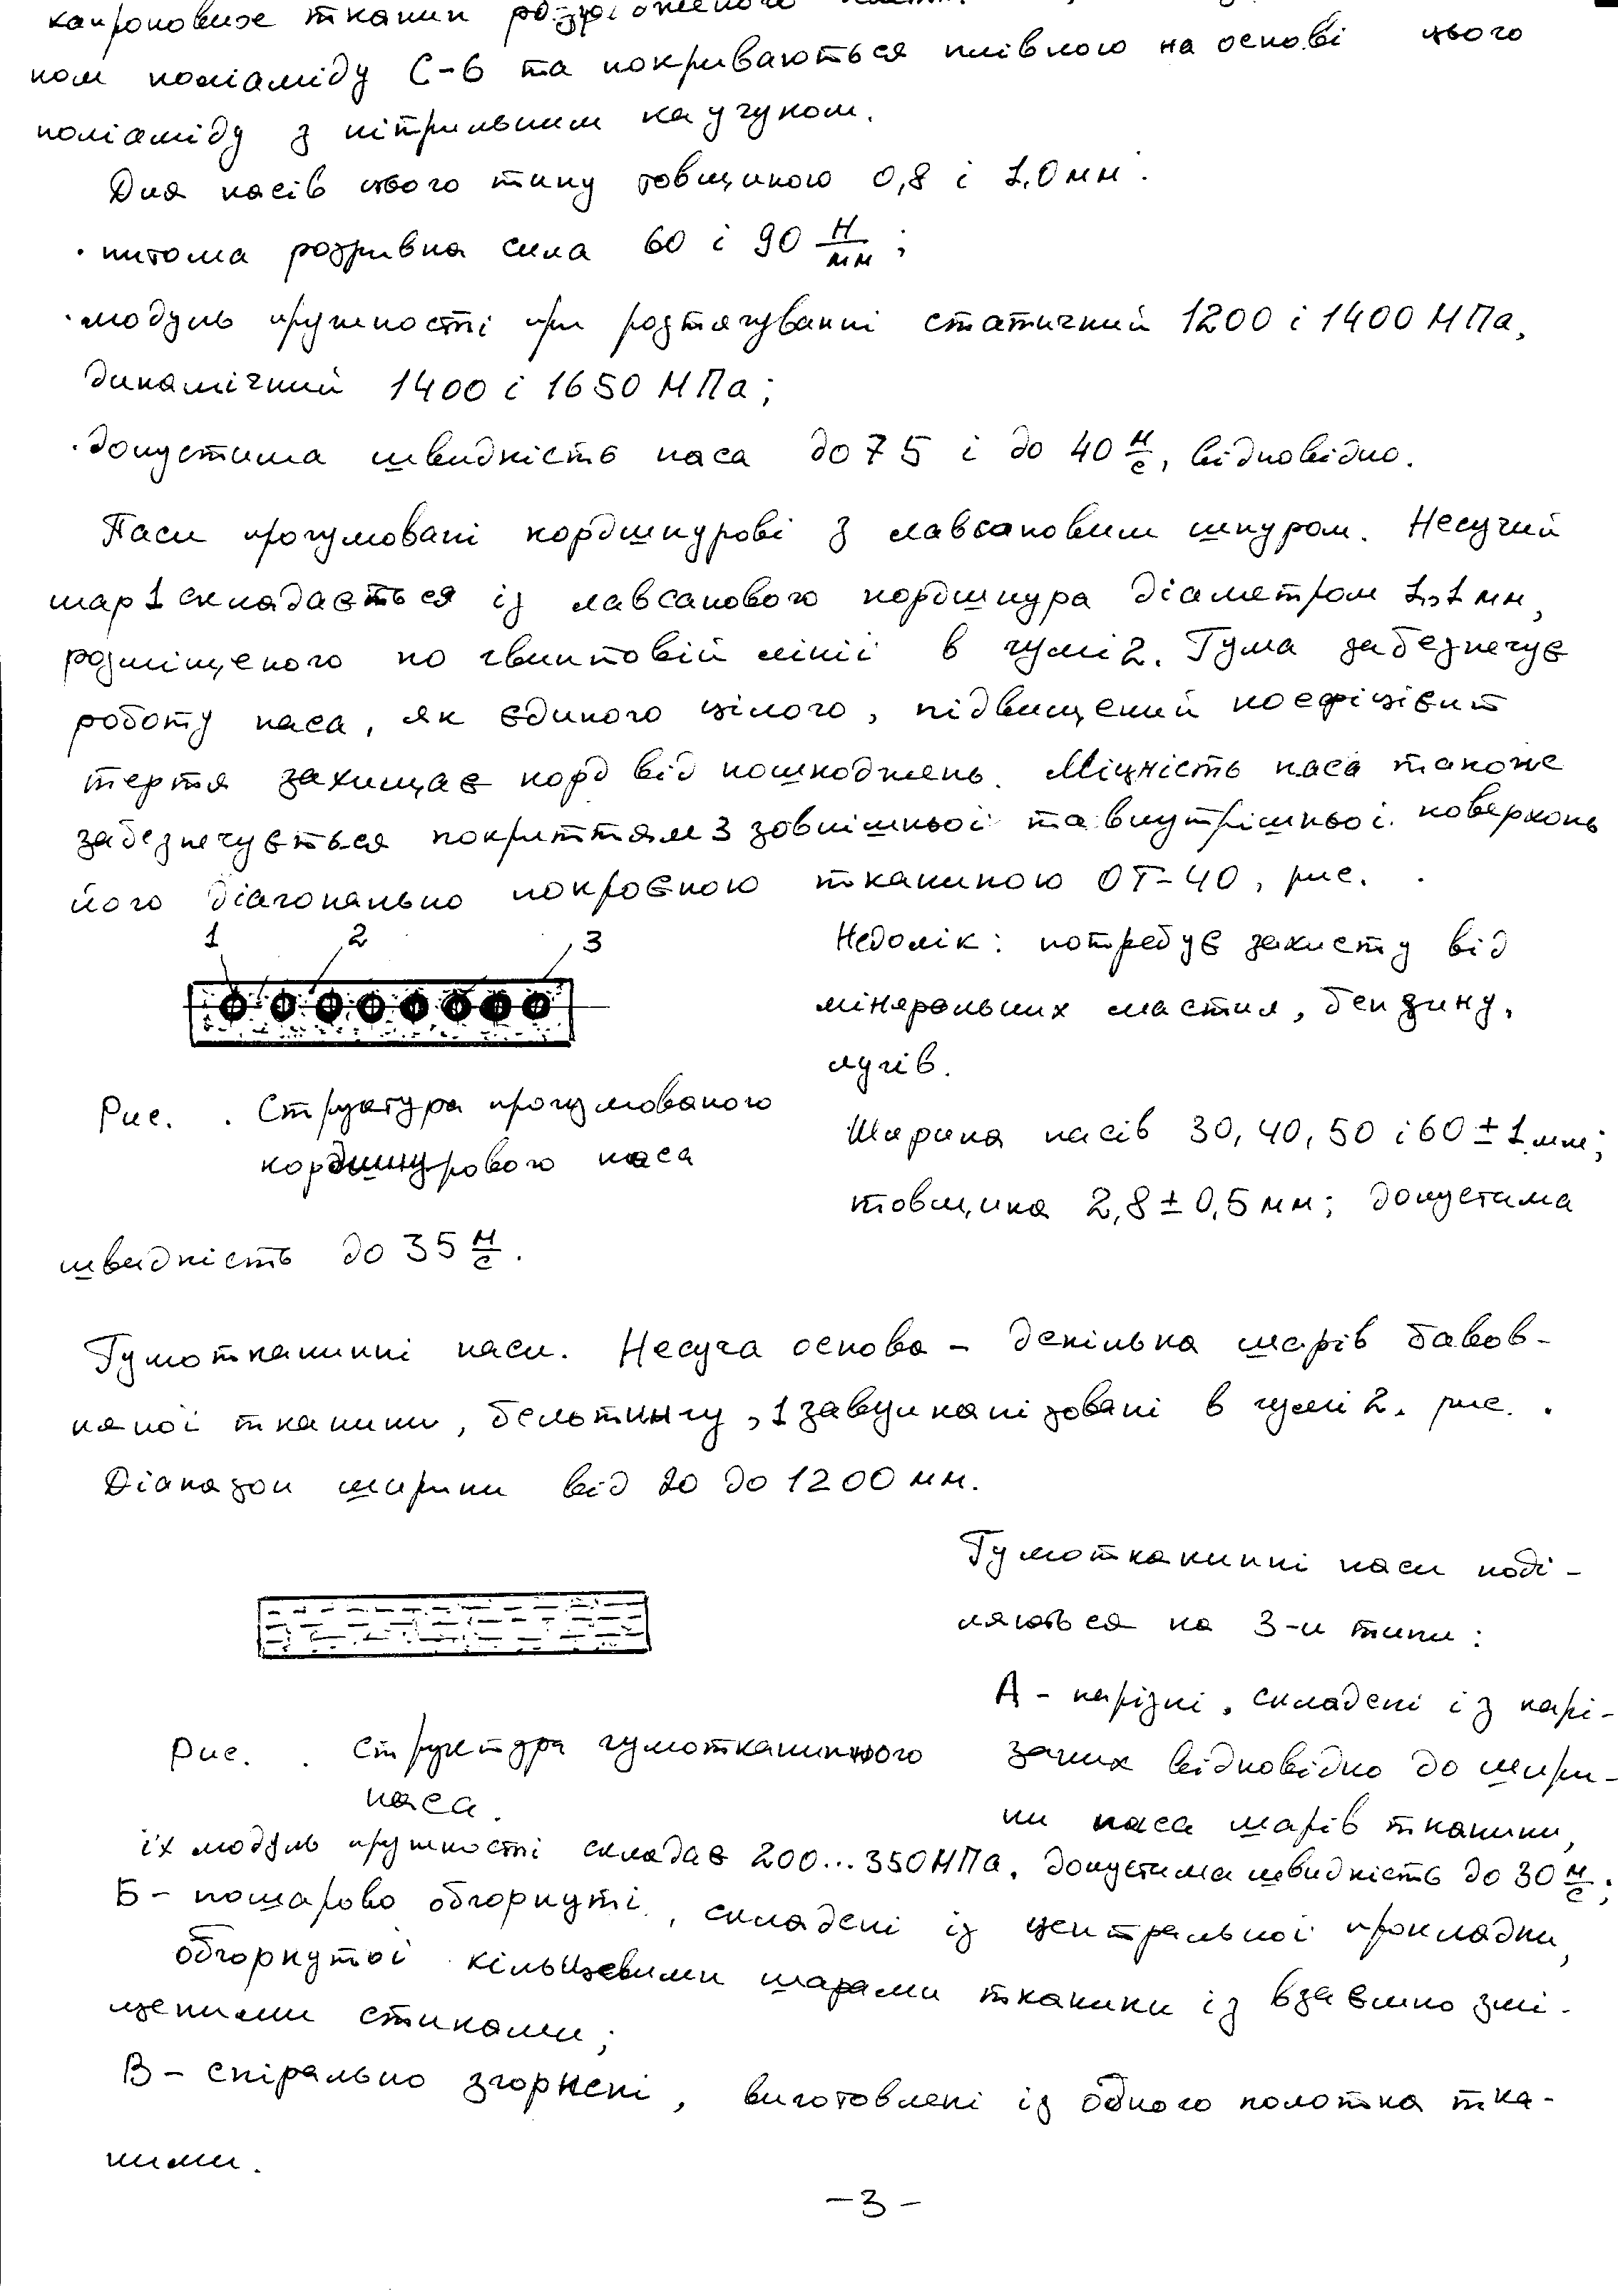 капронових тканин
ном поліаміду С-6 та покриваються плівкою на основі цього
поліаміду з нітрильним каучуком.
Для пасів цього типу товщиною 0,8 і 1,0 мм:
· питома розривна сила 60 і 90 Н/мм;
· модуль пружності при розтягуванні статичний 1200 і 1400 МПа,
динамічний 1400 і 1650 МПа;
· допустима швидкість паса до 75 і до 40 м/с, відповідно.
Паси прогумовані кордшнурові з лавсановим шнуром. Несучий
шар 1 складається із лавсанового кордшнура діаметром 1,1 мм,
розміщеного по гвинтовій лінії в гумі 2. Гума забезпечує
роботу паса, як єдиного цілого, підвищений коефіцієнт
тертя захищає корд від пошкоджень. Міцність паса також
забезпечується покриттям 3 зовнішньої та внутрішньої поверхонь
його діагонально покроєною тканиною ОТ-40, рис. .
1 2 3
Недолік: потребує захисту від
мінеральних мастил, бензину,
лугів.
Рис. . Структура прогумованого
кордшнурового паса
Ширина пасів 30, 40, 50 і 60 ± 1 мм;
товщина 2,8 ± 0,5 мм; допустима
швидкість до 35 м/с.
Гумотканинні паси. Несуча основа – декілька шарів бавов-
няної тканини, бельтингу, 1 завулканізовані в гумі 2. рис. .
Діапазон ширини від 20 до 1200 мм.
Гумотканинні паси поді-
ляються на 3-и типи:
А – нарізні, складені із нарі-
заних відповідно до шири-
ни паса шарів тканини,
Рис. . Структура гумотканинного
паса.
їх модуль пружності складає 200...350 МПа, допустима швидкість до 30 м/с;
Б – пошарово обгорнуті, складені із центральної прокладки,
обгорнутої кільцевими шарами тканини із взаємно змі-
щеними стиками;
В – спірально згорнені, виготовлені із одного полотна тка-
нини.
– 3 –